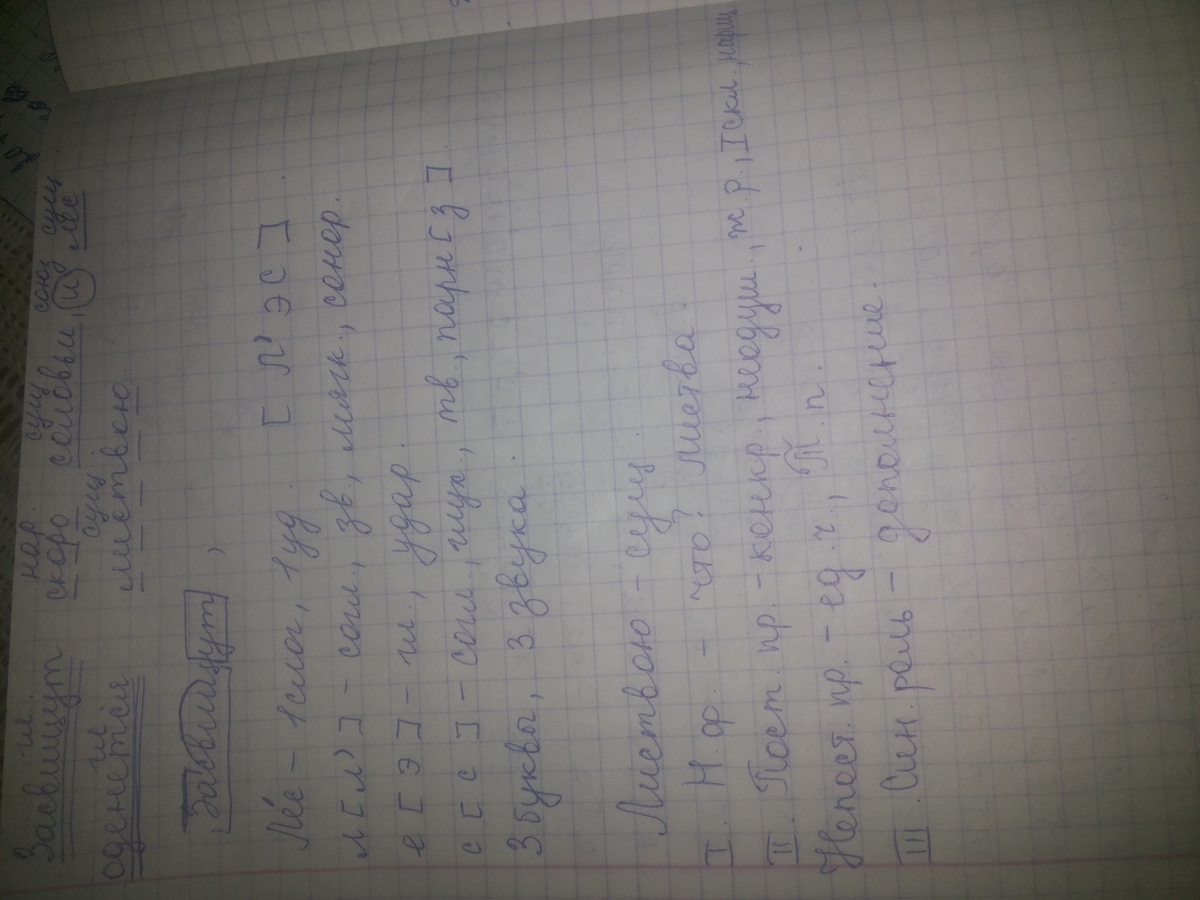 гл. нар. сущ. союз сущ
Засвищут скоро соловьи, и лес
гл сущ
оденется листвою.
Засвищут,
Лес – 1 слог, 1 уд. [л'эс].
л [л'] – согл., зв., мягк., сонор.
е [э] – гл., удар.
с [с] – согл., глух., тв., парн [з].
3 буквы, 3 звука.
Листвою – сущ.
I. Н.ф. – что? листва.
II. Пост. пр. – конкр., неодуш., ж.р., I скл., нариц
Непост. пр. – ед.ч., Т.п.
III. Син. роль – дополнение.